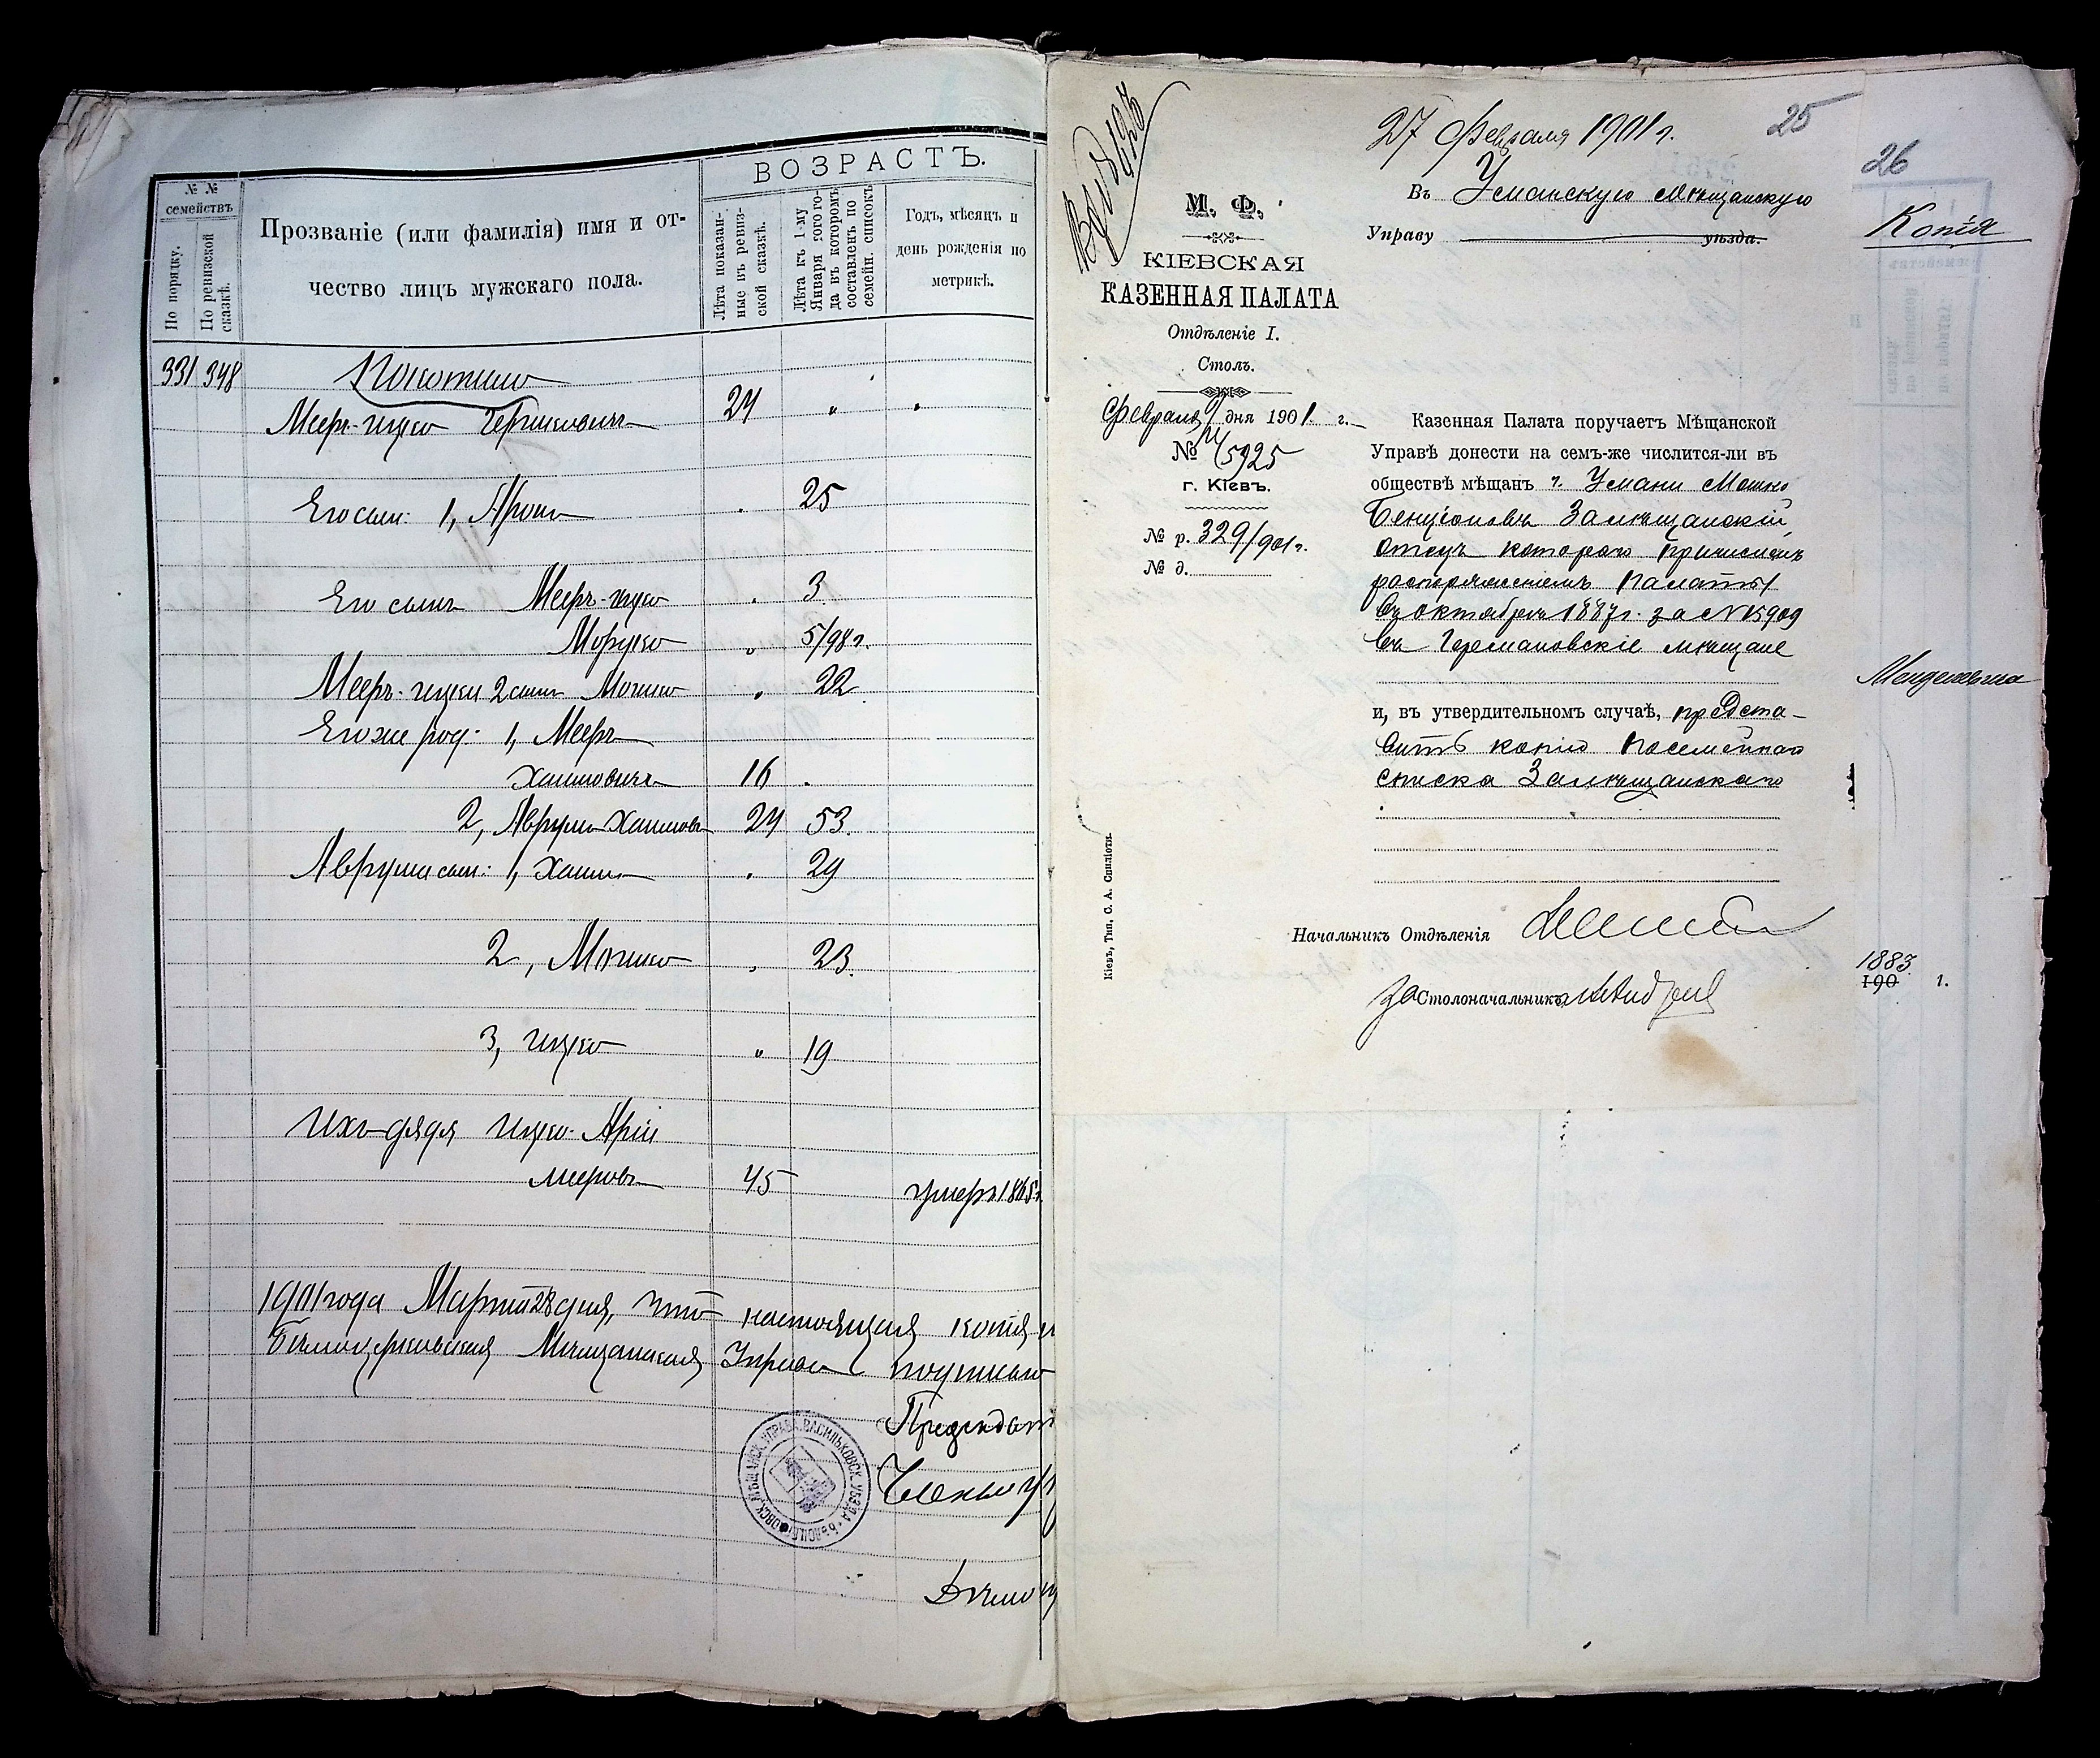 № №
семействъ
По порядку.
По ревизской сказкѣ.
Прозваніе (или фамилія) имя и от-
чество лицъ мужскаго пола.
ВОЗРАСТЪ.
Лѣта показан-
ные въ ревиз-
ской сказкѣ.
Лѣта къ 1-му
Января того го-
да въ которомъ
составленъ по
семейн. списокъ
Годъ, мѣсяцъ и
день рожденія по
метрикѣ.
331 348
Мееръ-Ицко Гершковичъ 24 "
Его сын: 1, Аронъ 25
Его сынъ Мееръ-Ицко 3
Мордко " 5/98 г.
Мееръ-Ицки 2 сынъ Мошко " 22
Его же род: 1, Мееръ
Хаимовичъ 16
2, Аврумъ Хаимовъ 24 53.
Аврума сын: 1, Хаимъ 29
2, Мошко 23.
3, Ицко " 19
Ихъ дядя Ицко-Арій
Мееровъ 45 умеръ 1865г.
1901 года Марта 28 дня, что настоящая копія
Бѣлоцерковская Мѣщанская Управа
БѢЛОЦЕРКОВСК. МѢЩАНСК. УПРАВА ВАСИЛЬКОВСК. УѢЗДА
27 Февраля 1901 г.
25
Въ Уманскую мѣщанскую
Управу уѣзда.
М. Ф.
КІЕВСКАЯ
КАЗЕННАЯ ПАЛАТА
Отдѣленіе I.
Столъ.
Февраля дня 1901. г.
№ 5925
г. Кіевъ.
№ р. 329/901 г.
№ д.
Казенная Палата поручаетъ Мѣщанской
Управѣ донести на семъ-же числится-ли въ
обществѣ мѣщанъ г. Умани Мошко
Бенціоновъ Замѣщанскій,
отецъ котораго причисленъ
распоряженіемъ Палаты
въ октябрѣ 1887 г. за № 15909
въ Германовскіе мѣщане
и, въ утвердительномъ случаѣ, предста-
вить копію посемейнаго
списка Замѣщанскаго
Начальникъ Отдѣленія
за Столоначальника
Кіевъ, Тип. С. А. Спиліоти.
26
Копія
1883
190 г.